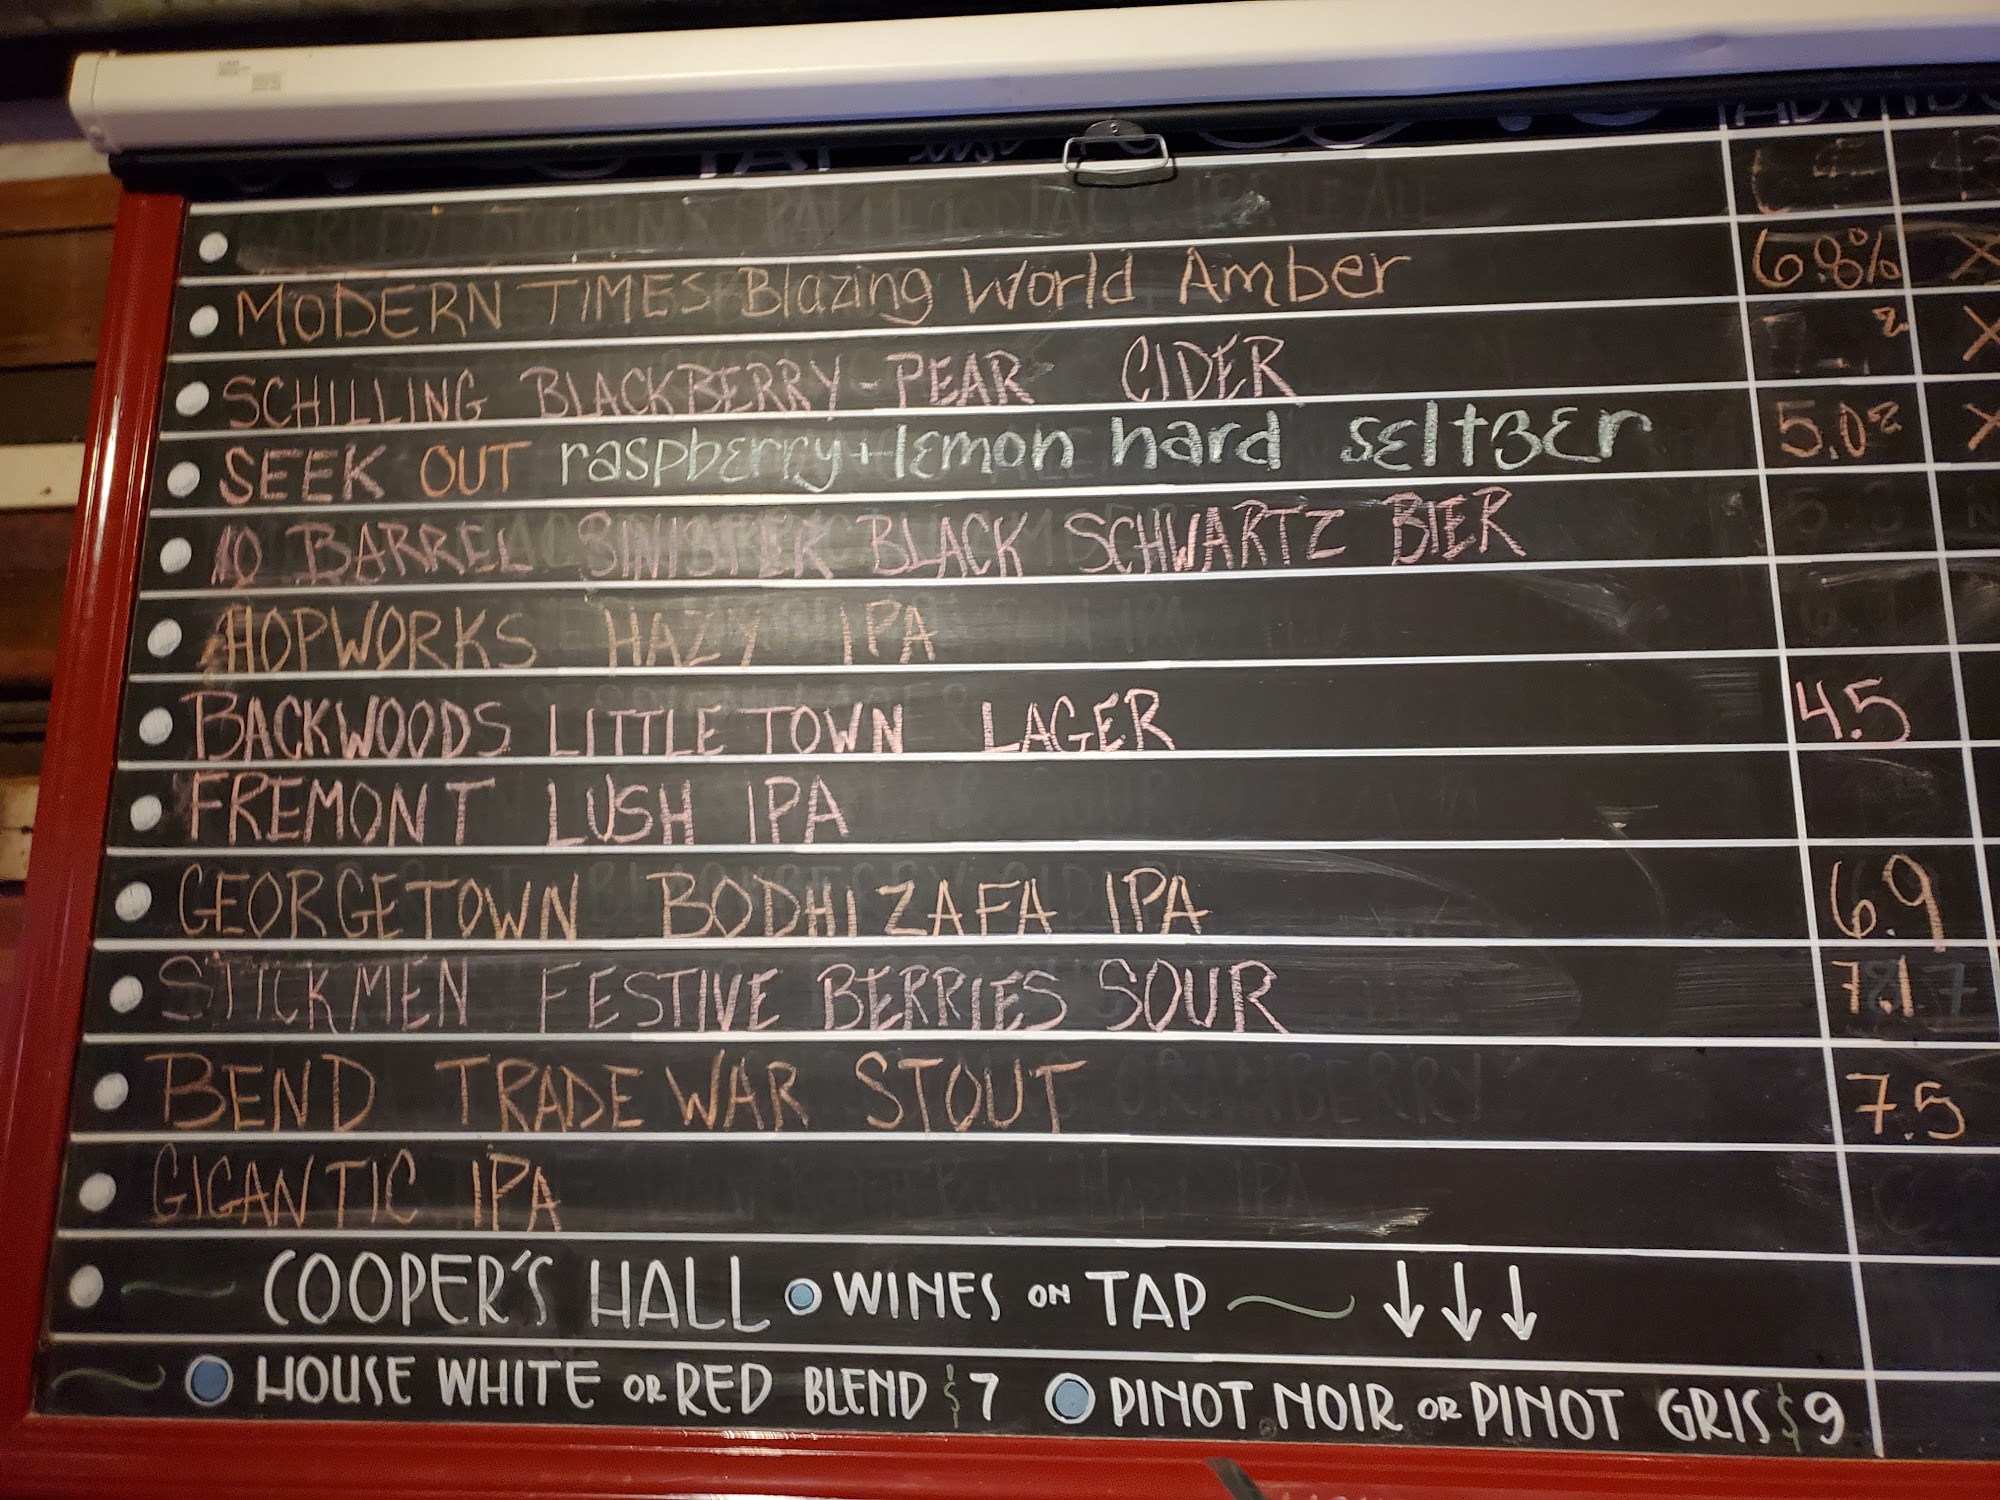 TAP
MODERN TIMES Blazing World Amber 6.8% X
SCHILLING BLACKBERRY-PEAR CIDER X
SEEK OUT raspberry+lemon hard seltzer 5.0% X
10 BARREL SINISTER BLACK SCHWARTZ BIER
HOPWORKS HAZY IPA
BACKWOODS LITTLE TOWN LAGER 4.5
FREMONT LUSH IPA
GEORGETOWN BODHIZAFA IPA 6.9
STICKMEN FESTIVE BERRIES SOUR 7.1
BEND TRADE WAR STOUT 7.5
GIGANTIC IPA
COOPER'S HALL WINES ON TAP
HOUSE WHITE OR RED BLEND $7 PINOT NOIR OR PINOT GRIS $9